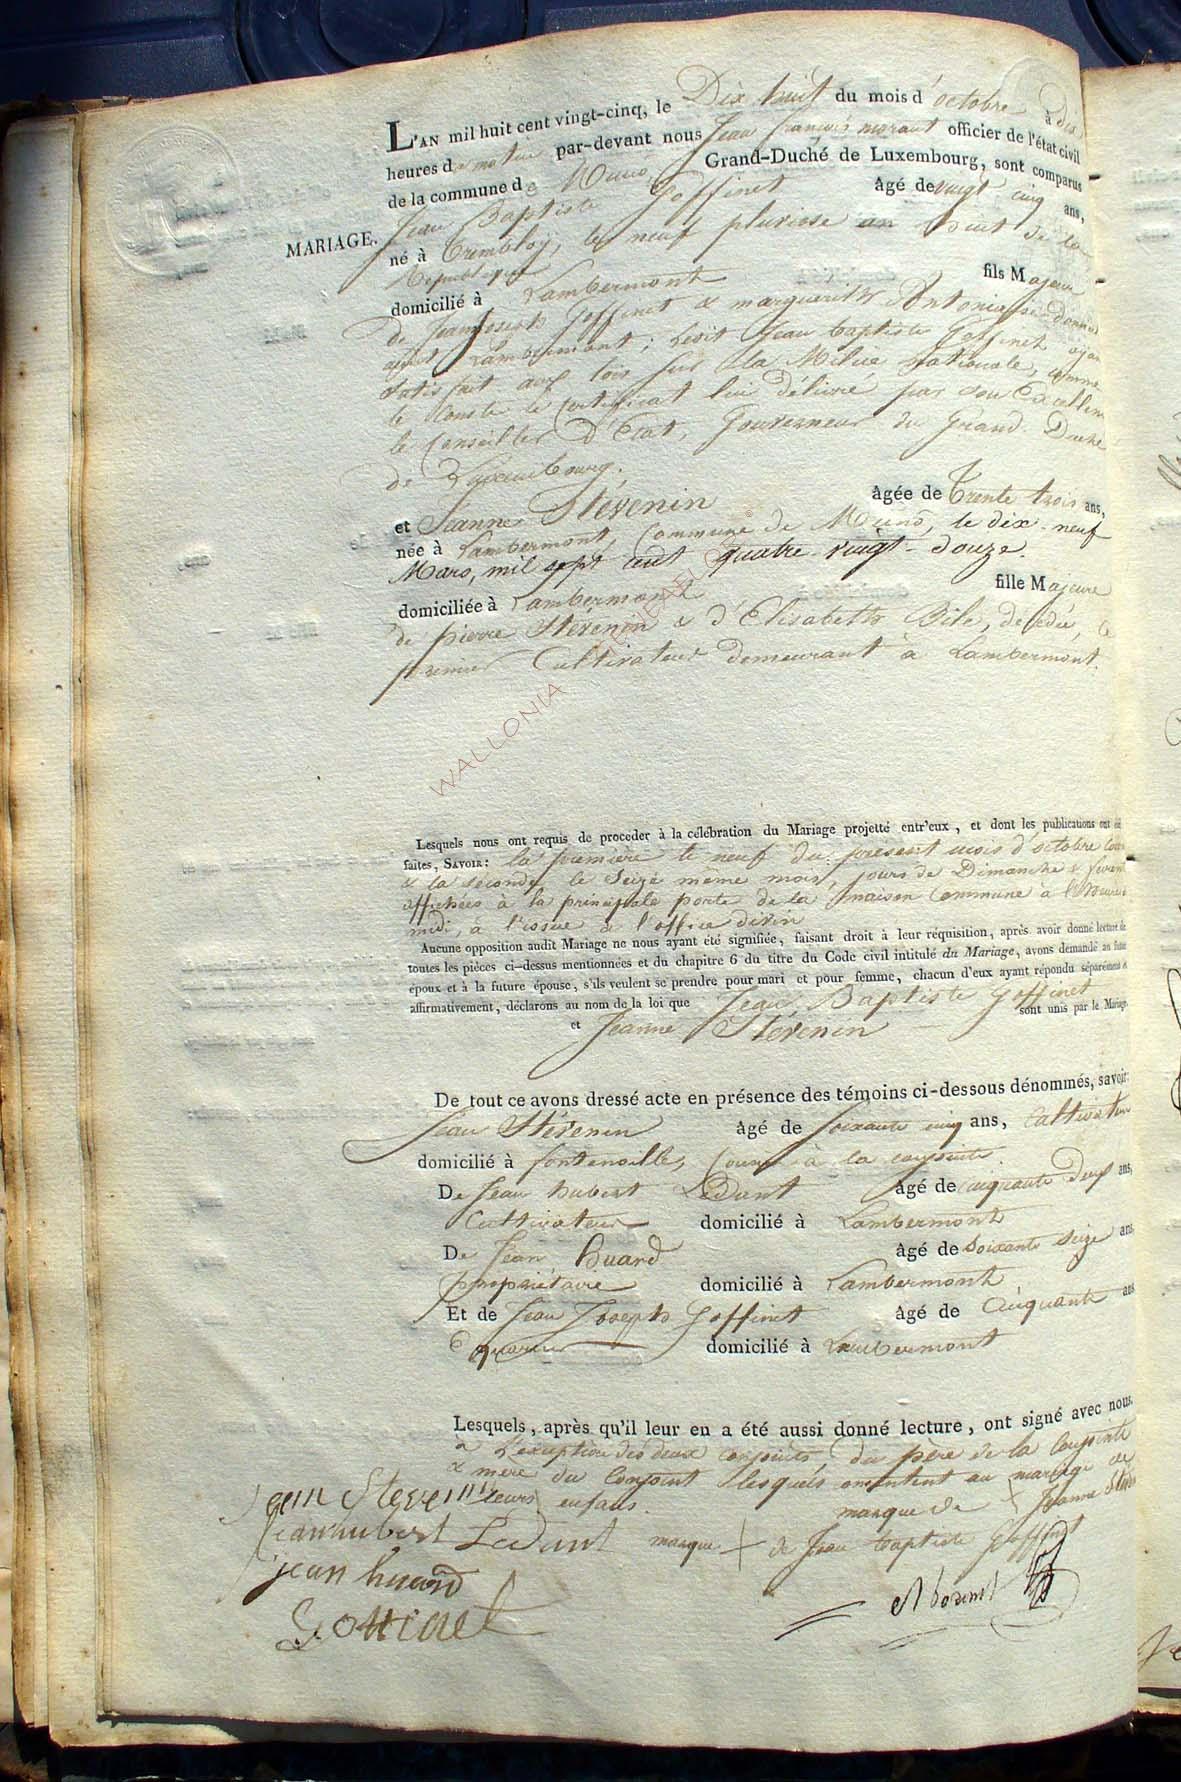 L'AN mil huit cent vingt-cinq, le Dix huit du mois d'octobre à dix
heures du matin par-devant nous Jean françois morant officier de l'état civil
de la commune de Muno, Grand-Duché de Luxembourg, sont comparus
Jean Baptiste Goffinet âgé de vingt cinq ans,
MARIAGE.
né à Trembloy, le neuf pluviose an huit de la
République
domicilié à Lambermont fils Majeur
de Jean Joseph Goffinet & marguerith Antoni
Lambermont; ledit Jean baptiste Goffinet ayant
satisfait aux lois sur la Milice nationale, comme
le Conste le Certificat lui délivré par son Excellence
le Conseiller d'Etat, Gouverneur du Grand Duché
de Luxembourg.
et Jeanne Stévenin âgée de Trente trois ans,
née à Lambermont, Commune de Muno, le dix-neuf
Mars, mil sept cent quatre-vingt-douze.
domiciliée à Lambermont fille Majeure
de pierre Stévenin & d'Elisabeth Bile, décédée, le
premier Cultivateur demeurant à Lambermont.
WALLONIA
Lesquels nous ont requis de proceder à la célébration du Mariage projetté entr'eux, et dont les publications ont été
faites, SAVOIR: la première le neuf du présent mois d'octobre
& la séconde le Seize même mois, jours de Dimanche &
affichées à la principale porte de la maison Commune à l'heure de
midi, à l'issue de l'office divin
Aucune opposition audit Mariage ne nous ayant été signifiée, faisant droit à leur réquisition, après avoir donné lecture de
toutes les pièces ci-dessus mentionnées et du chapitre 6 du titre du Code civil intitulé du Mariage, avons demandé au futur
époux et à la future épouse, s'ils veulent se prendre pour mari et pour femme, chacun d'eux ayant répondu séparément et
affirmativement, déclarons au nom de la loi que Jean Baptiste Goffinet
et Jeanne Stévenin sont unis par le Mariage
De tout ce avons dressé acte en présence des témoins ci-dessous dénommés, savoir:
Jean Stévenin âgé de soixante cinq ans, Cultivateur
domicilié à fontenoille, Cousin à la conjointe.
De Jean hubert Ledant âgé de cinquante Deux ans,
Cultivateur domicilié à Lambermont
De Jean Huard âgé de soixante seize ans
propriétaire domicilié à Lambermont
Et de Jean Joseph Goffinet âgé de Cinquante ans
domicilié à Lambermont
Lesquels, après qu'il leur en a été aussi donné lecture, ont signé avec nous.
à l'exception des deux conjoints, du père de la Conjointe
& mère du Conjoint lesquels consentent au mariage de
leurs enfans.
jean Stevenin
marque de + Jeanne
jeanhubert Ledant
marque + de Jean baptiste Goffinet
jean huard
Goffinet